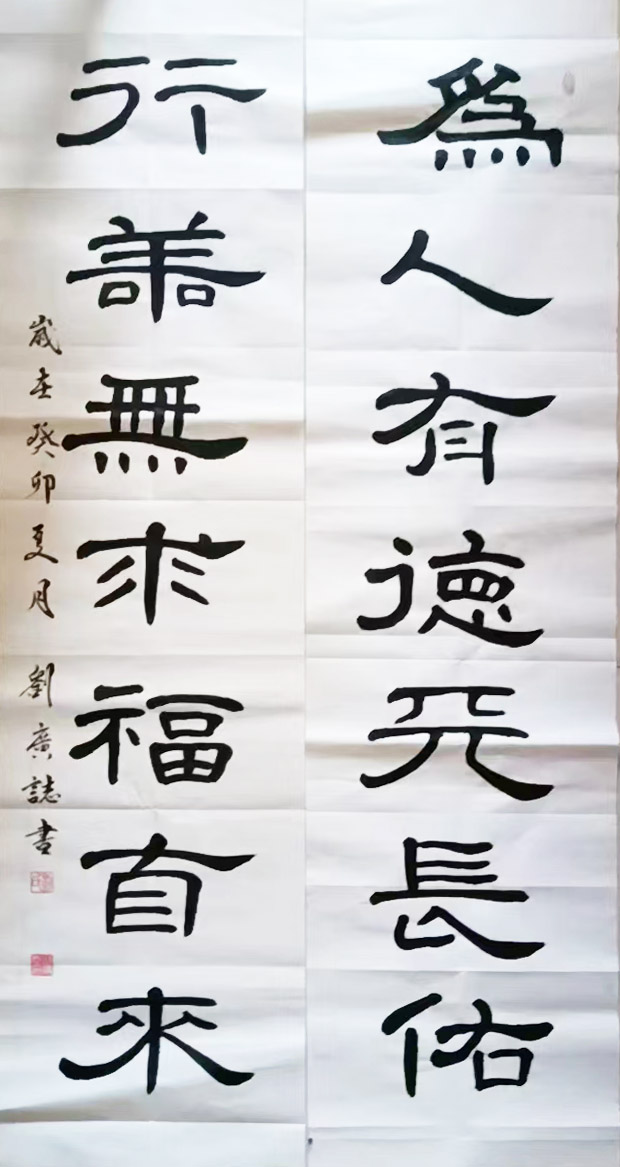 爲人有德天長佑
行善無求福自來
歲在癸卯夏月 劉廣誌書